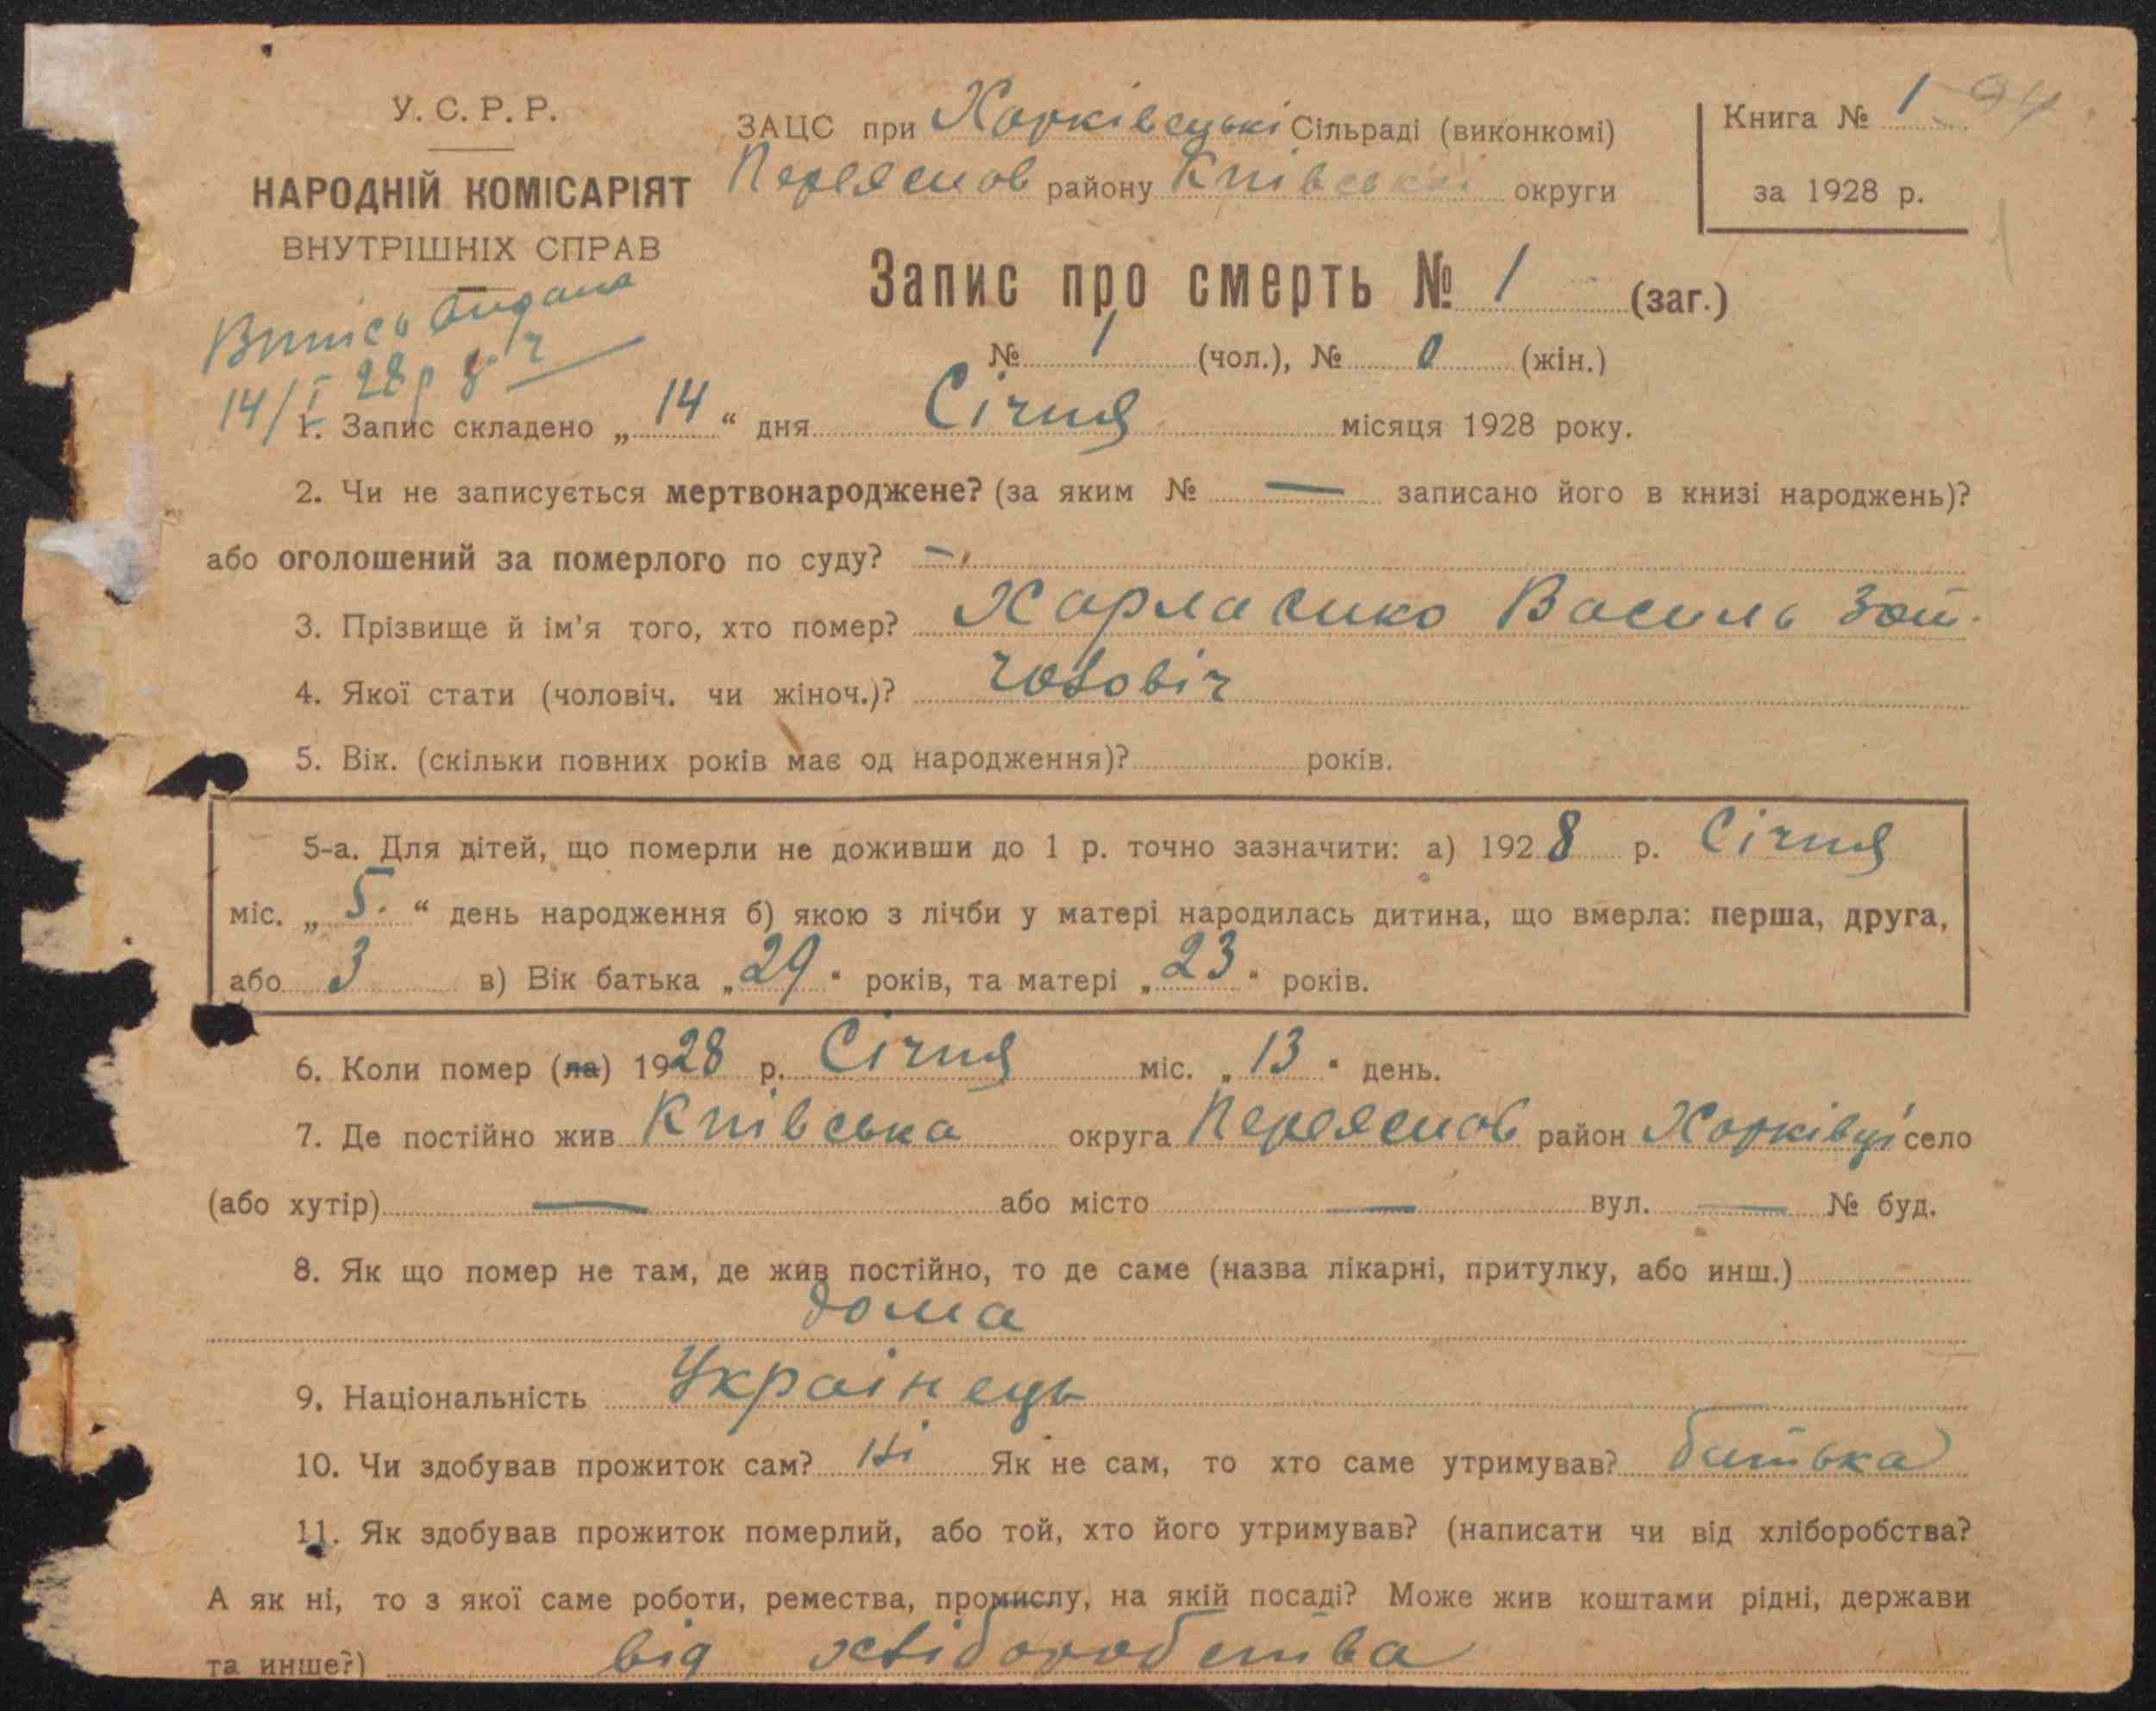 У. С. Р. Р.
НАРОДНІЙ КОМІСАРІЯТ
ВНУТРІШНІХ СПРАВ
ЗАЦС при Харківецькі Сільраді (виконкомі)
Переяслов району Київської округи
Книга № 1
за 1928 р.
Запис про смерть № 1 (заг.)
№ 1 (чол.), № 0 (жін.)
Випісь видана
14/I 28р
1. Запис складено „ 14 “ дня Січня місяця 1928 року.
2. Чи не записується мертвонароджене? (за яким № — записано його в книзі народжень)?
або оголошений за померлого по суду? —
3. Прізвище й ім'я того, хто помер? Василь Зот.
4. Якої стати (чоловіч. чи жіноч.)? чоловіч
5. Вік. (скільки повних років має од народження)? років.
5-а. Для дітей, що померли не доживши до 1 р. точно зазначити: а) 1928 р. Січня
міс. „ 5. “ день народження б) якою з лічби у матері народилась дитина, що вмерла: перша, друга,
або 3 в) Вік батька „ 29 “ років, та матері „ 23 “ років.
6. Коли помер (ла) 1928 р. Січня міс. „ 13 “ день.
7. Де постійно жив Київська округа Переяслов район Харківці село
(або хутір) — або місто — вул. — № буд.
8. Як що помер не там, де жив постійно, то де саме (назва лікарні, притулку, або инш.)
дома
9. Національність Украінець
10. Чи здобував прожиток сам? Ні Як не сам, то хто саме утримував? батька
11. Як здобував прожиток померлий, або той, хто його утримував? (написати чи від хліборобства?
А як ні, то з якої саме роботи, ремества, промислу, на якій посаді? Може жив коштами рідні, держави
та инше?) від хліборобства